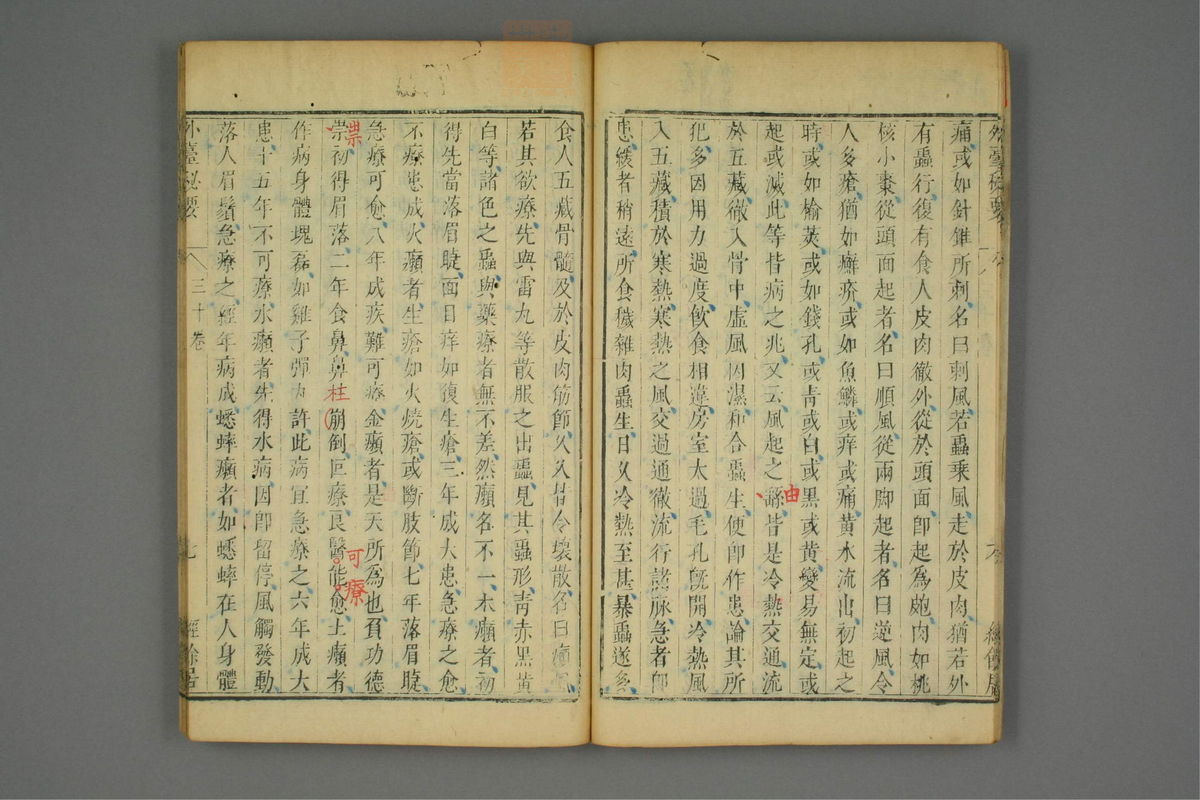 外臺秘要
痛或如針錐所刺名曰刺風若蟲乘風走於皮肉猶若外
有蟲行復有食人皮肉徹外從於頭面即起為皰肉如桃
核小棗從頭面起者名曰順風從兩脚起者名曰逆風令
人多瘡猶如癬疥或如魚鱗或痒或痛黃水流出初起之
時或如榆莢或如錢孔或青或白或黑或黃變易無定或
起或滅此等皆病之兆又云風起之繇皆是冷熱交通流
由
於五藏徹入骨中虛風因濕和合蟲生便即作患論其所
犯多因用力過度飲食相違房室太過毛孔旣開冷熱風
入五藏積於寒熱寒熱之風交過通徹流行諸脉急者即
患緩者稍遠所食穢雜肉蟲生日久冷熱至甚暴蟲遂多
食人五藏骨髓及於皮肉筋節久久皆令壞散名曰癩風
若其欲療先與雷丸等散服之出蟲見其蟲形青赤黑黃
白等諸色之蟲與藥療者無不差然癩名不一木癩者初
得先當落眉睫面目痒如復生瘡三年成大患急療之愈
不療患成火癩者生瘡如火燒瘡或斷肢節七年落眉睫
急療可愈八年成疾難可療金癩者是天所為也負功德
祟初得眉落二年食鼻鼻柱崩倒叵療良醫能愈土癩者
祟
可療
作病身體塊磊如雞子彈丸許此病宜急療之六年成大
患十五年不可療水癩者先得水病因即留停風觸發動
落人眉鬚急療之經年病成蟋蟀癩者如蟋蟀在人身體
外臺秘要
三十卷
七
經餘居